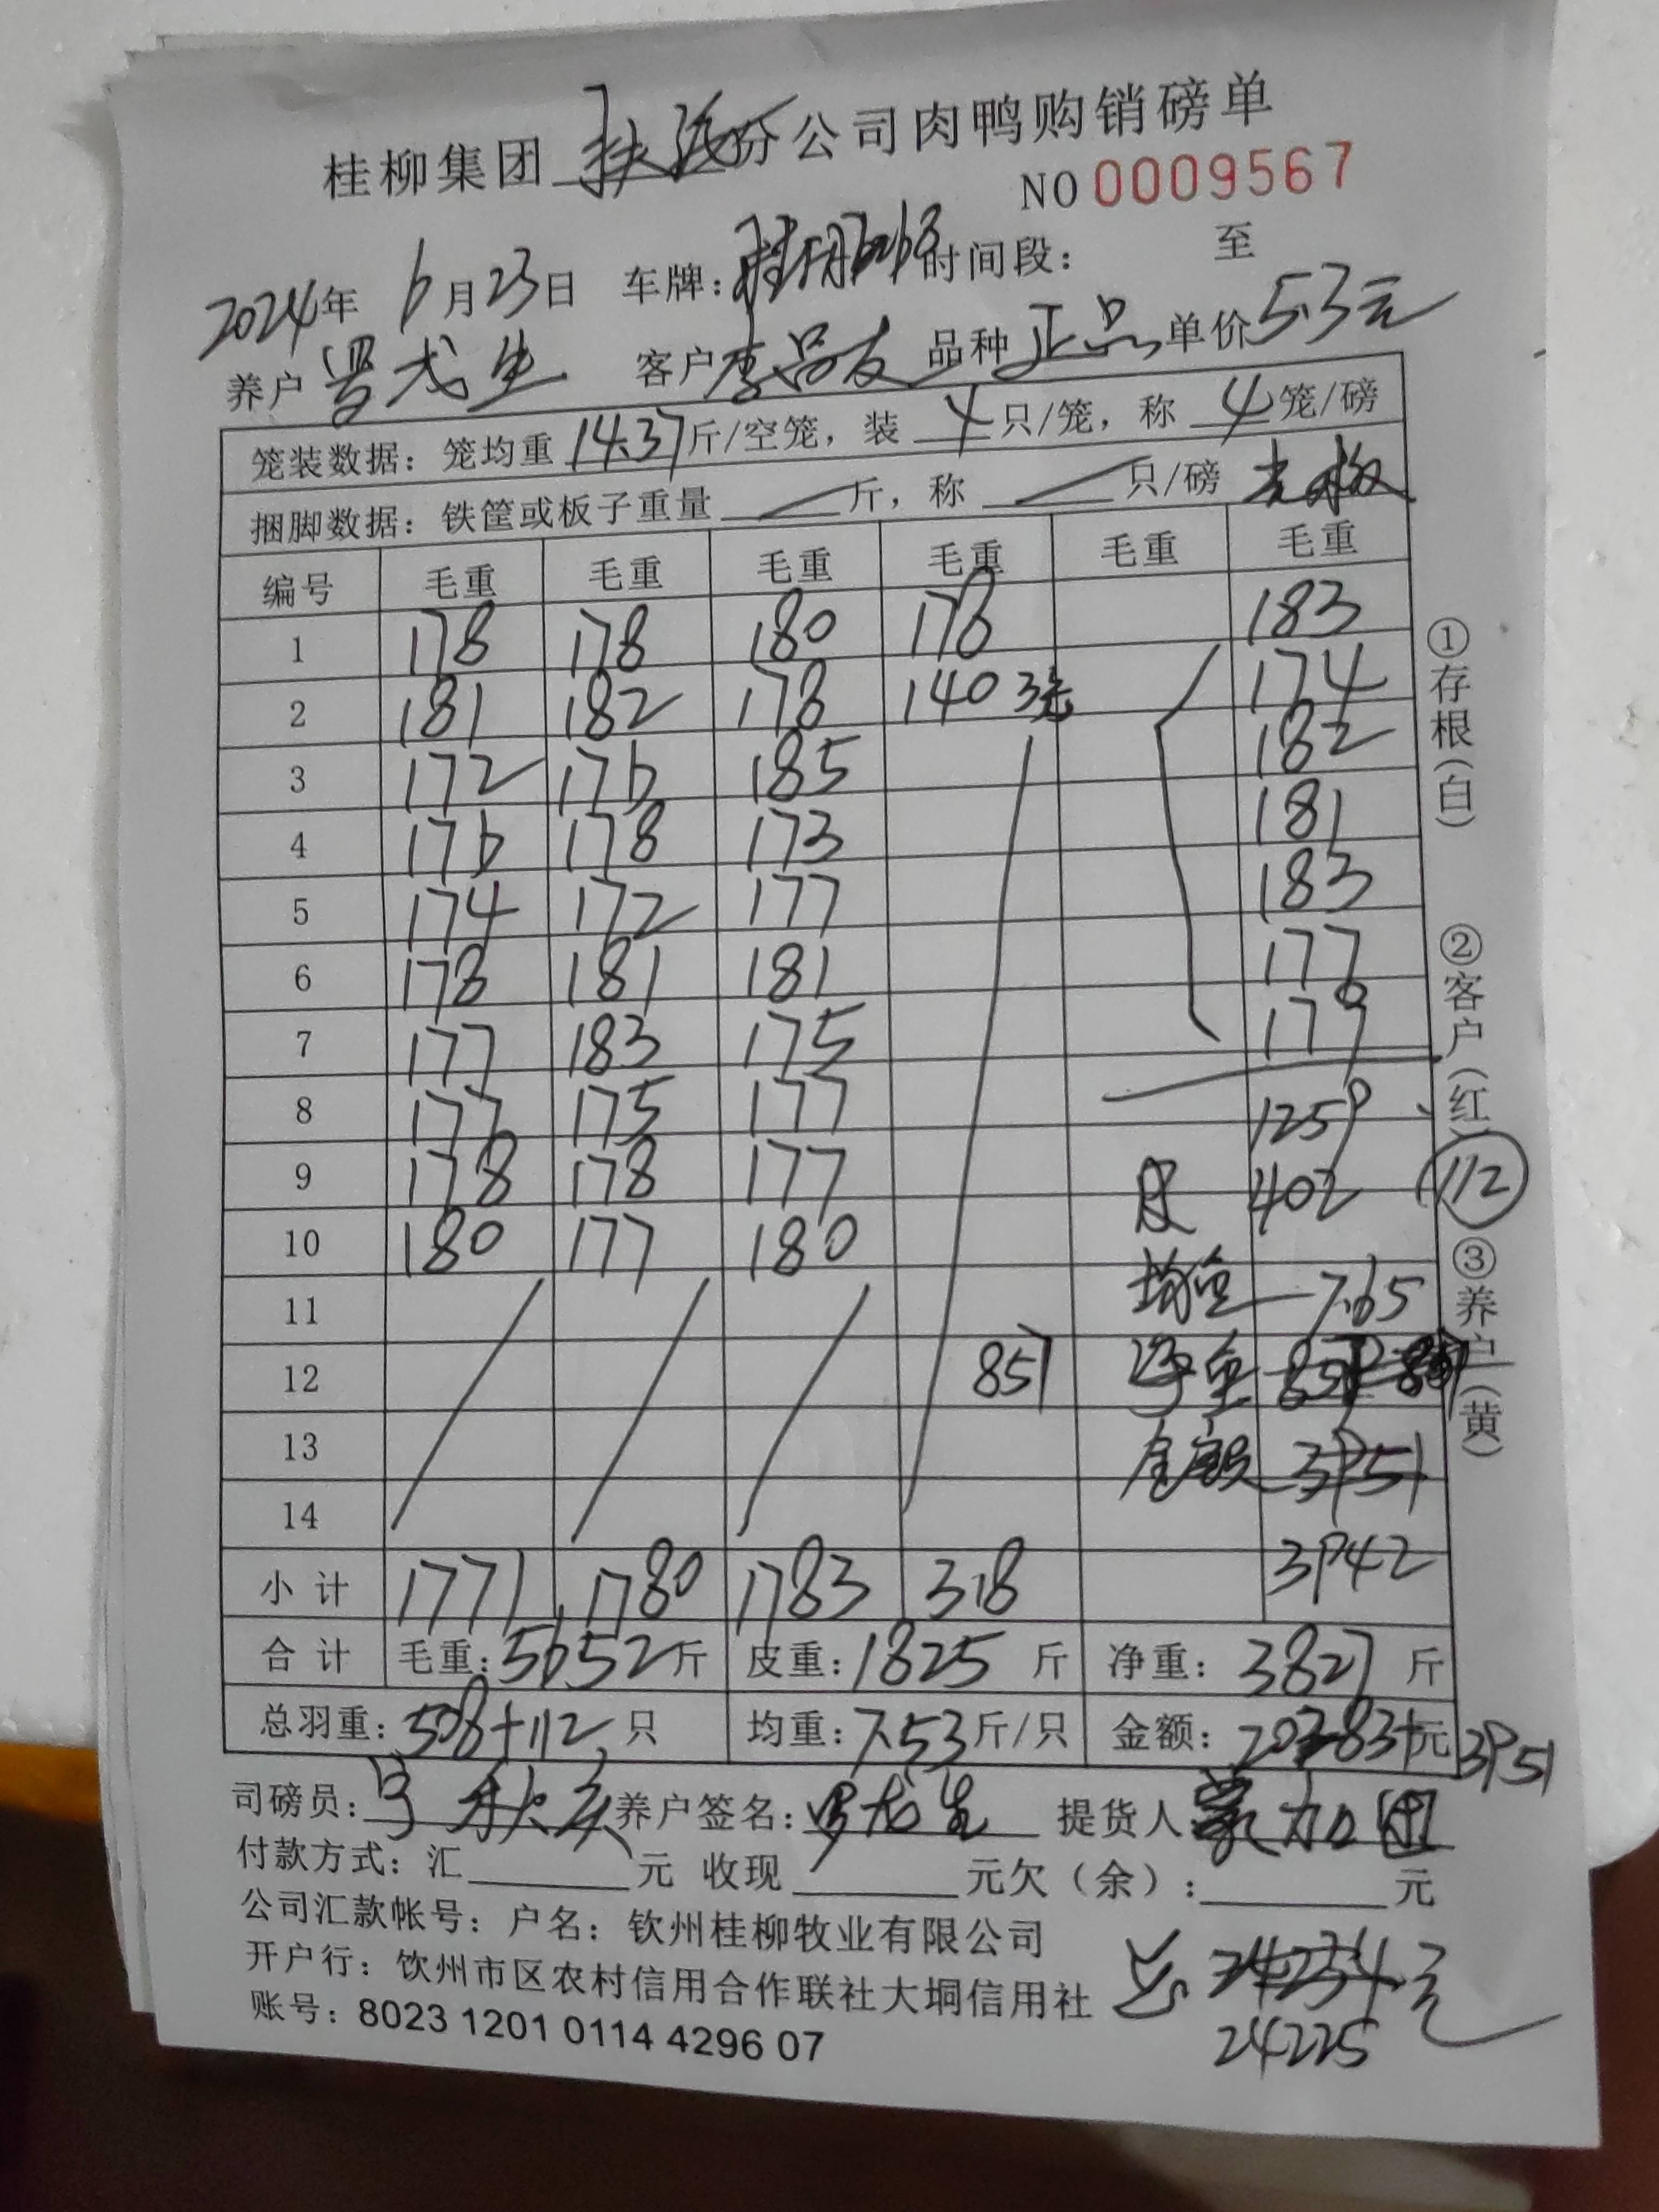 桂柳集团 扶绥分公司肉鸭购销磅单
NO 0009567
2024年 6月23日 车牌: 时间段: 至
养户 客户 李品友 品种 正品 单价 5.3元
笼装数据: 笼均重 14.37 斤/空笼, 装 4 只/笼, 称 4 笼/磅
捆脚数据: 铁筐或板子重量 斤, 称 只/磅
编号 毛重 毛重 毛重 毛重 毛重 毛重
1 178 178 180 178 183
2 181 182 178 140 3笼 174
3 172 176 185 182
4 176 178 173 181
5 174 172 177 183
6 178 181 181 177
7 177 183 175 179
8 177 175 177 1259
9 178 178 177 皮 402 112
10 180 177 180
11 均重 7.65
12 857 净重
13 金额 3951
14
小计 1771 1780 1783 318 3942
合计 毛重: 5652 斤 皮重: 1825 斤 净重: 3827 斤
总羽重: 508+112 只 均重: 7.53 斤/只 金额: 20283+元 3951
司磅员: 养户签名: 提货人
付款方式: 汇 元 收现 元欠(余): 元
公司汇款帐号: 户名: 钦州桂柳牧业有限公司
开户行: 钦州市区农村信用合作联社大垌信用社
总 24234元
账号: 8023 1201 0114 4296 07
24225
①存根(白)
②客户(红)
③养户(黄)